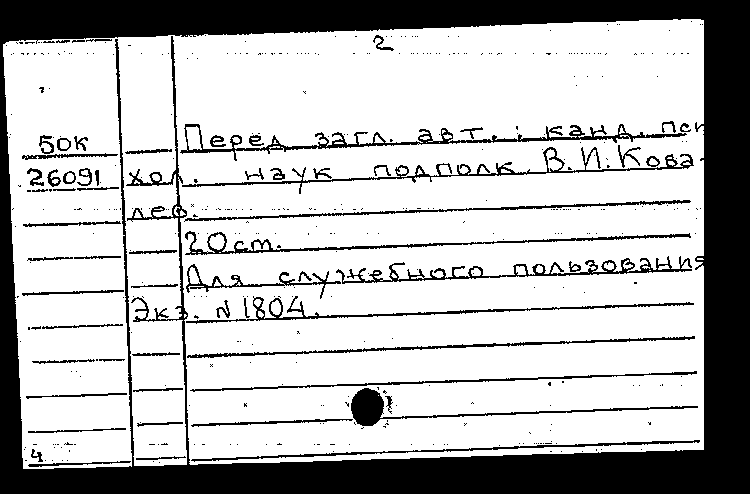 2
50к Перед загл. авт.: канд. псі
26091 хол. наук подполк. В.И.Кова-
лев.
20 ст.
Для служебного пользования
Экз. N 1804.
4